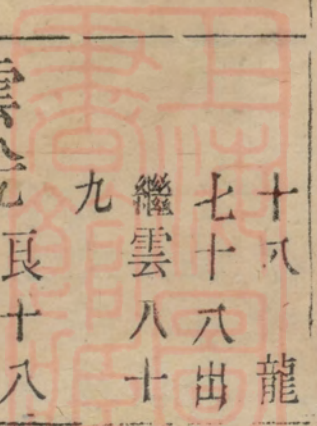 十八　龍
七十八出
繼雲八十
九
良十八